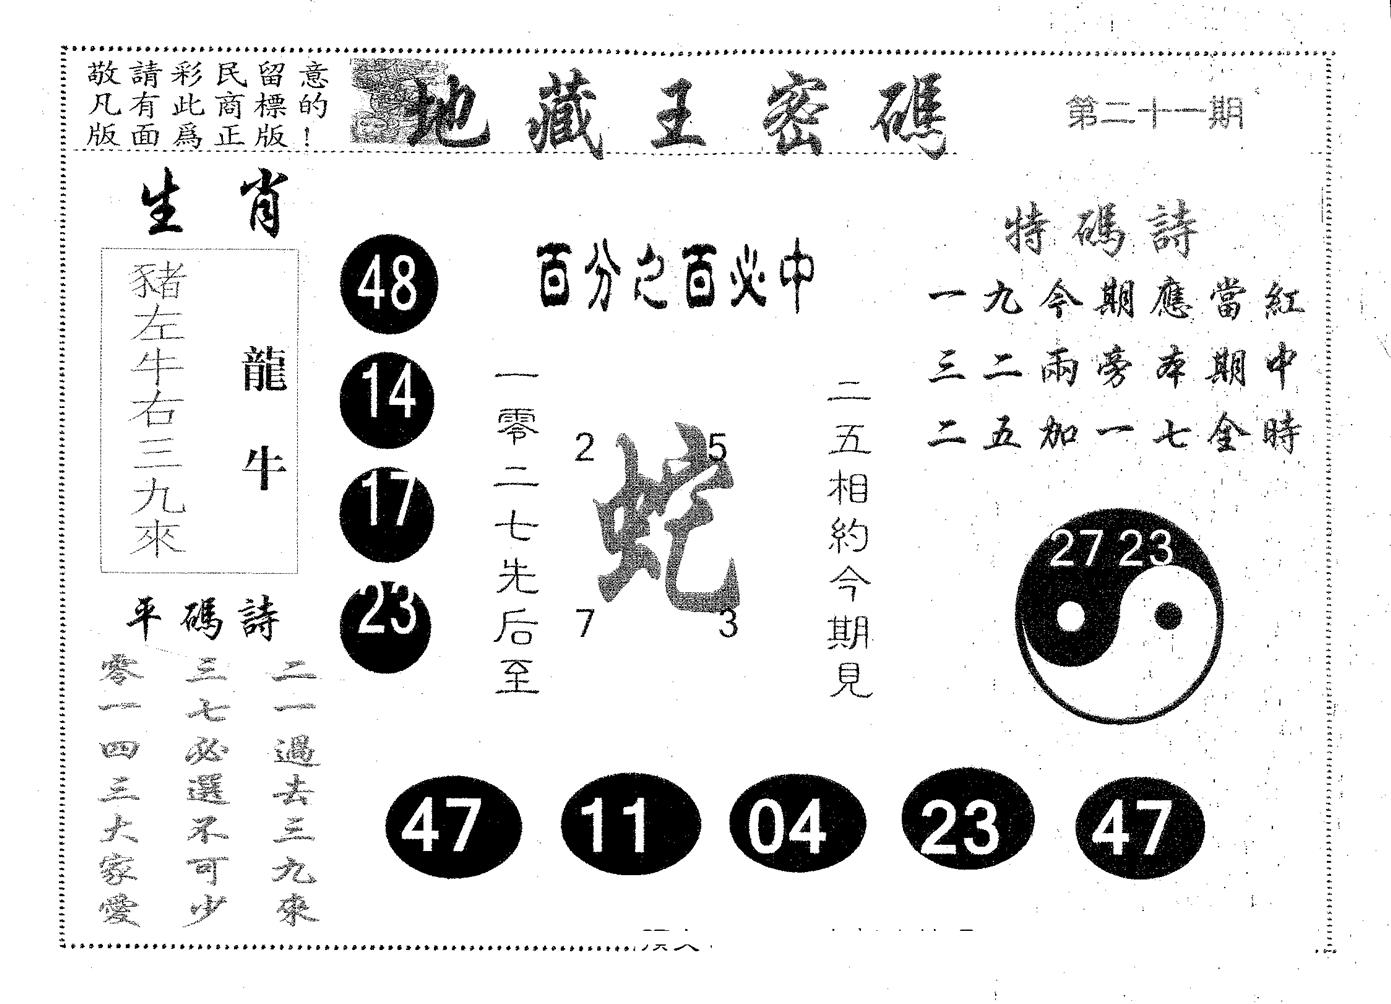 敬請彩民留意
凡有此商標的
版面爲正版！
地藏王密碼
第二十一期
生肖
豬左牛右三九來
龍牛
平碼詩
二一過去三九來
三七必選不可少
零一四三大家愛
48
14
17
23
百分之百必中
一零二七先后至
2
5
蛇
7
3
二五相約今期見
特碼詩
一九今期應當紅
三二兩旁本期中
二五加一七全時
27 23
47
11
04
23
47